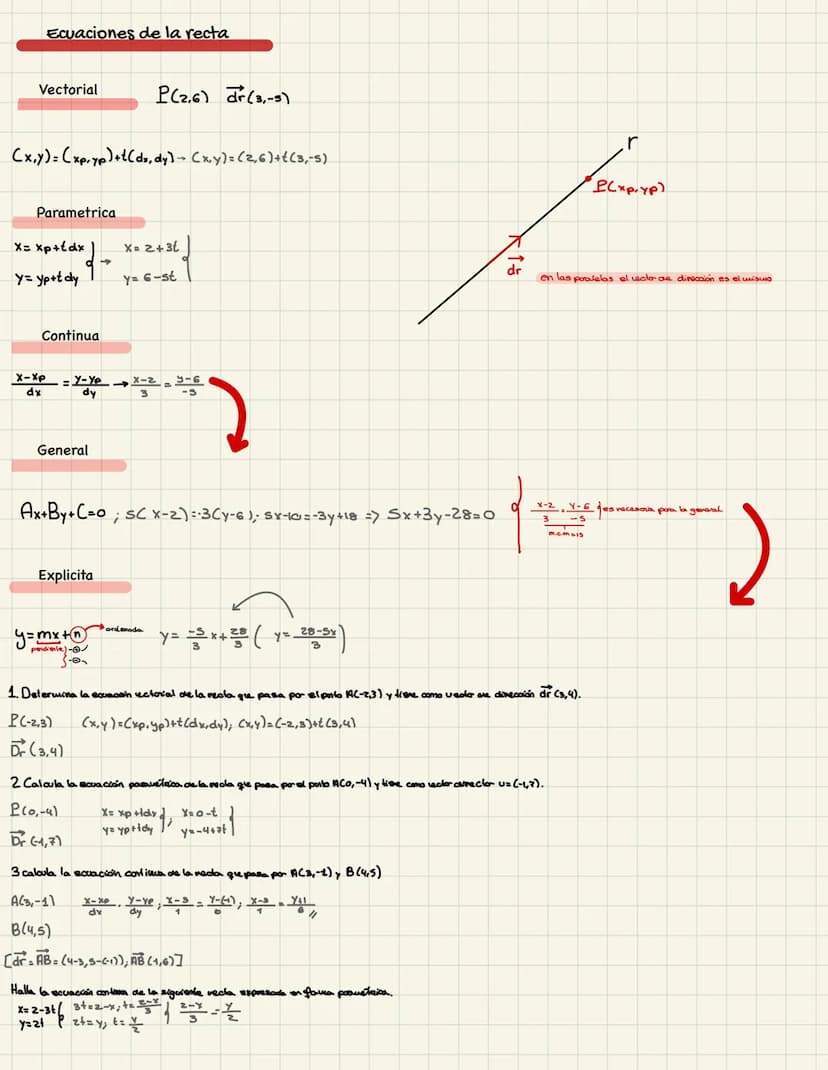 Ecuaciones de la recta
Vectorial
P(2,6) dr(3,-5)
(x,y)=(xp,yp)+t(dx,dy)→(x,y)=(2,6)+t(3,-5)
r
P(xp,yp)
dr
en las paralelas el vector de dirección es el mismo
Parametrica
x= xp+t dx } → x= 2+3t {
y= yp+t dy } y= 6-5t
Continua
x-xp/dx = y-yp/dy → x-2/3 = y-6/-5
General
Ax+By+C=0 ; 5(x-2)=-3(y-6); 5x-10=-3y+18 => 5x+3y-28=0
x-2/3 = y-6/-5 } es necesaria para la general
m.c.m=15
Explicita
y=mx+n → ordenada y= -5/3 x+ 28/3 ( y= 28-5x/3 )
pendiente
1. Determina la ecuación vectorial de la recta que pasa por el punto A(-2,3) y tiene como vector de dirección dr (3,4).
P(-2,3) (x,y)=(xp,yp)+t(dx,dy); (x,y)=(-2,3)+t(3,4)
Dr (3,4)
2 Calcula la ecuación parametrica de la recta que pasa por el punto A(0,-4) y tiene como vector director u=(-1,7).
P(0,-4) x= xp+tdx } ; x=0-t
Dr (-1,7) y= yp+tdy y=-4+7t
3 calcula la ecuación continua de la recta que pasa por A(3,-1) y B(4,5)
A(3,-1) x-xp/dx = y-yp/dy ; x-3/1 = y-(-1)/6 ; x-3/1 = y+1/6 //
B(4,5)
[dr = AB = (4-3, 5-(-1)); AB (1,6)]
Halla la ecuación continua de la siguiente recta expresada en forma parametrica.
x= 2-3t { 3t=2-x; t= 2-x/3 } 2-x/3 = y/2
y=2t 2t=y; t= y/2